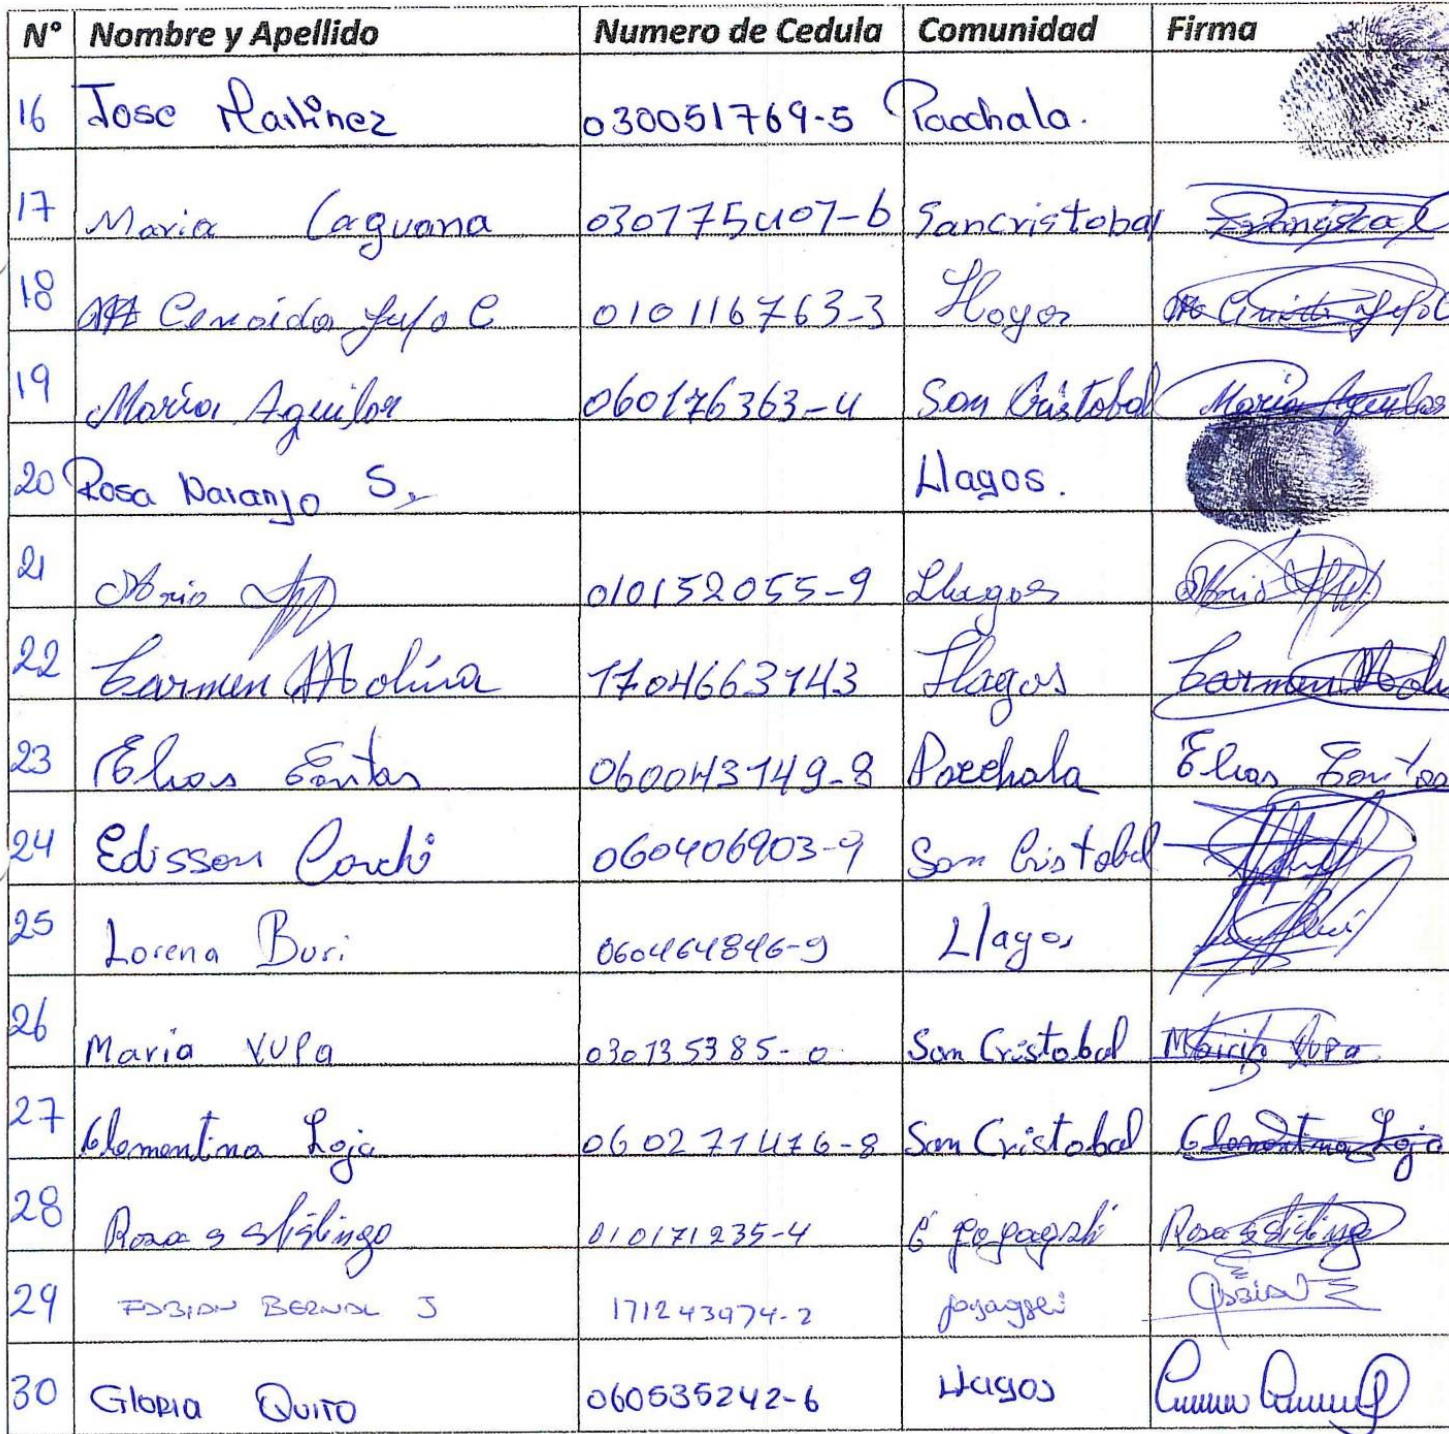 N° Nombre y Apellido Numero de Cedula Comunidad Firma
16 Jose Martinez 030051769-5 Pacchala.
17 Maria Caguana 030175407-6 Sancristobal Francisca C
18 Cenaida 010116763-3 Llagos
19 Maria Aguilar 060176363-4 San Cristobal Maria Aguilar
20 Rosa Naranjo S. Llagos.
21 010152055-9 Llagos
22 Carmen Molina 1704663143 Llagos Carmen Moli
23 Elias Entas 060043149-8 Pacchala Elias Entas
24 Edisson Conchi 060406903-9 San Cristobal
25 Lorena Buri 060464846-9 Llagos
26 Maria YUPa 030135385-0 San Cristobal Maria YUPa
27 Clementina Loja 060271476-8 San Cristobal Clementina Loja
28 Rosa 010171235-4 Rosa
29 FABIAN BERNAL J 171243974-2
30 GLORIA QUITO 060535242-6 Llagos